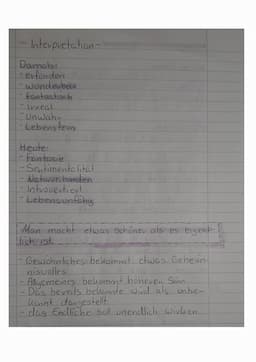 - Interpretation -
Damals:
- Erfunden
- wunderbar
- fantastisch
- irreal
- Unwahr
- Lebensfern
Heute:
- Fantasie
- Sentimentalität
- Introvertiert
- Lebensunfähig
Man macht etwas schöner als es eigent-
lich ist.
- Gewöhnliches bekommt etwas Geheim-
nisvolles
- Allgemeines bekommt höheren Sinn
- Das bereits bekannte wird als unbe-
kannt dargestellt
- das Endliche soll unendlich wirken